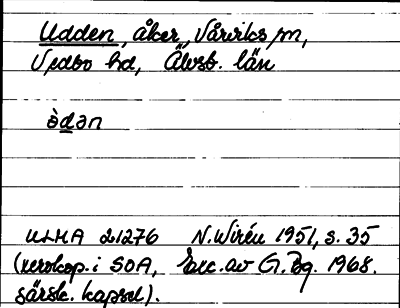 Udden, åker, Vårviks sn,
Vedbo hd, Älvsb. län
ùdən
ULMA 21276 N. Wirén 1951, s. 35
(xerokop. i SOA, Exc. av G. Bg. 1968.
särsk. kapsel).